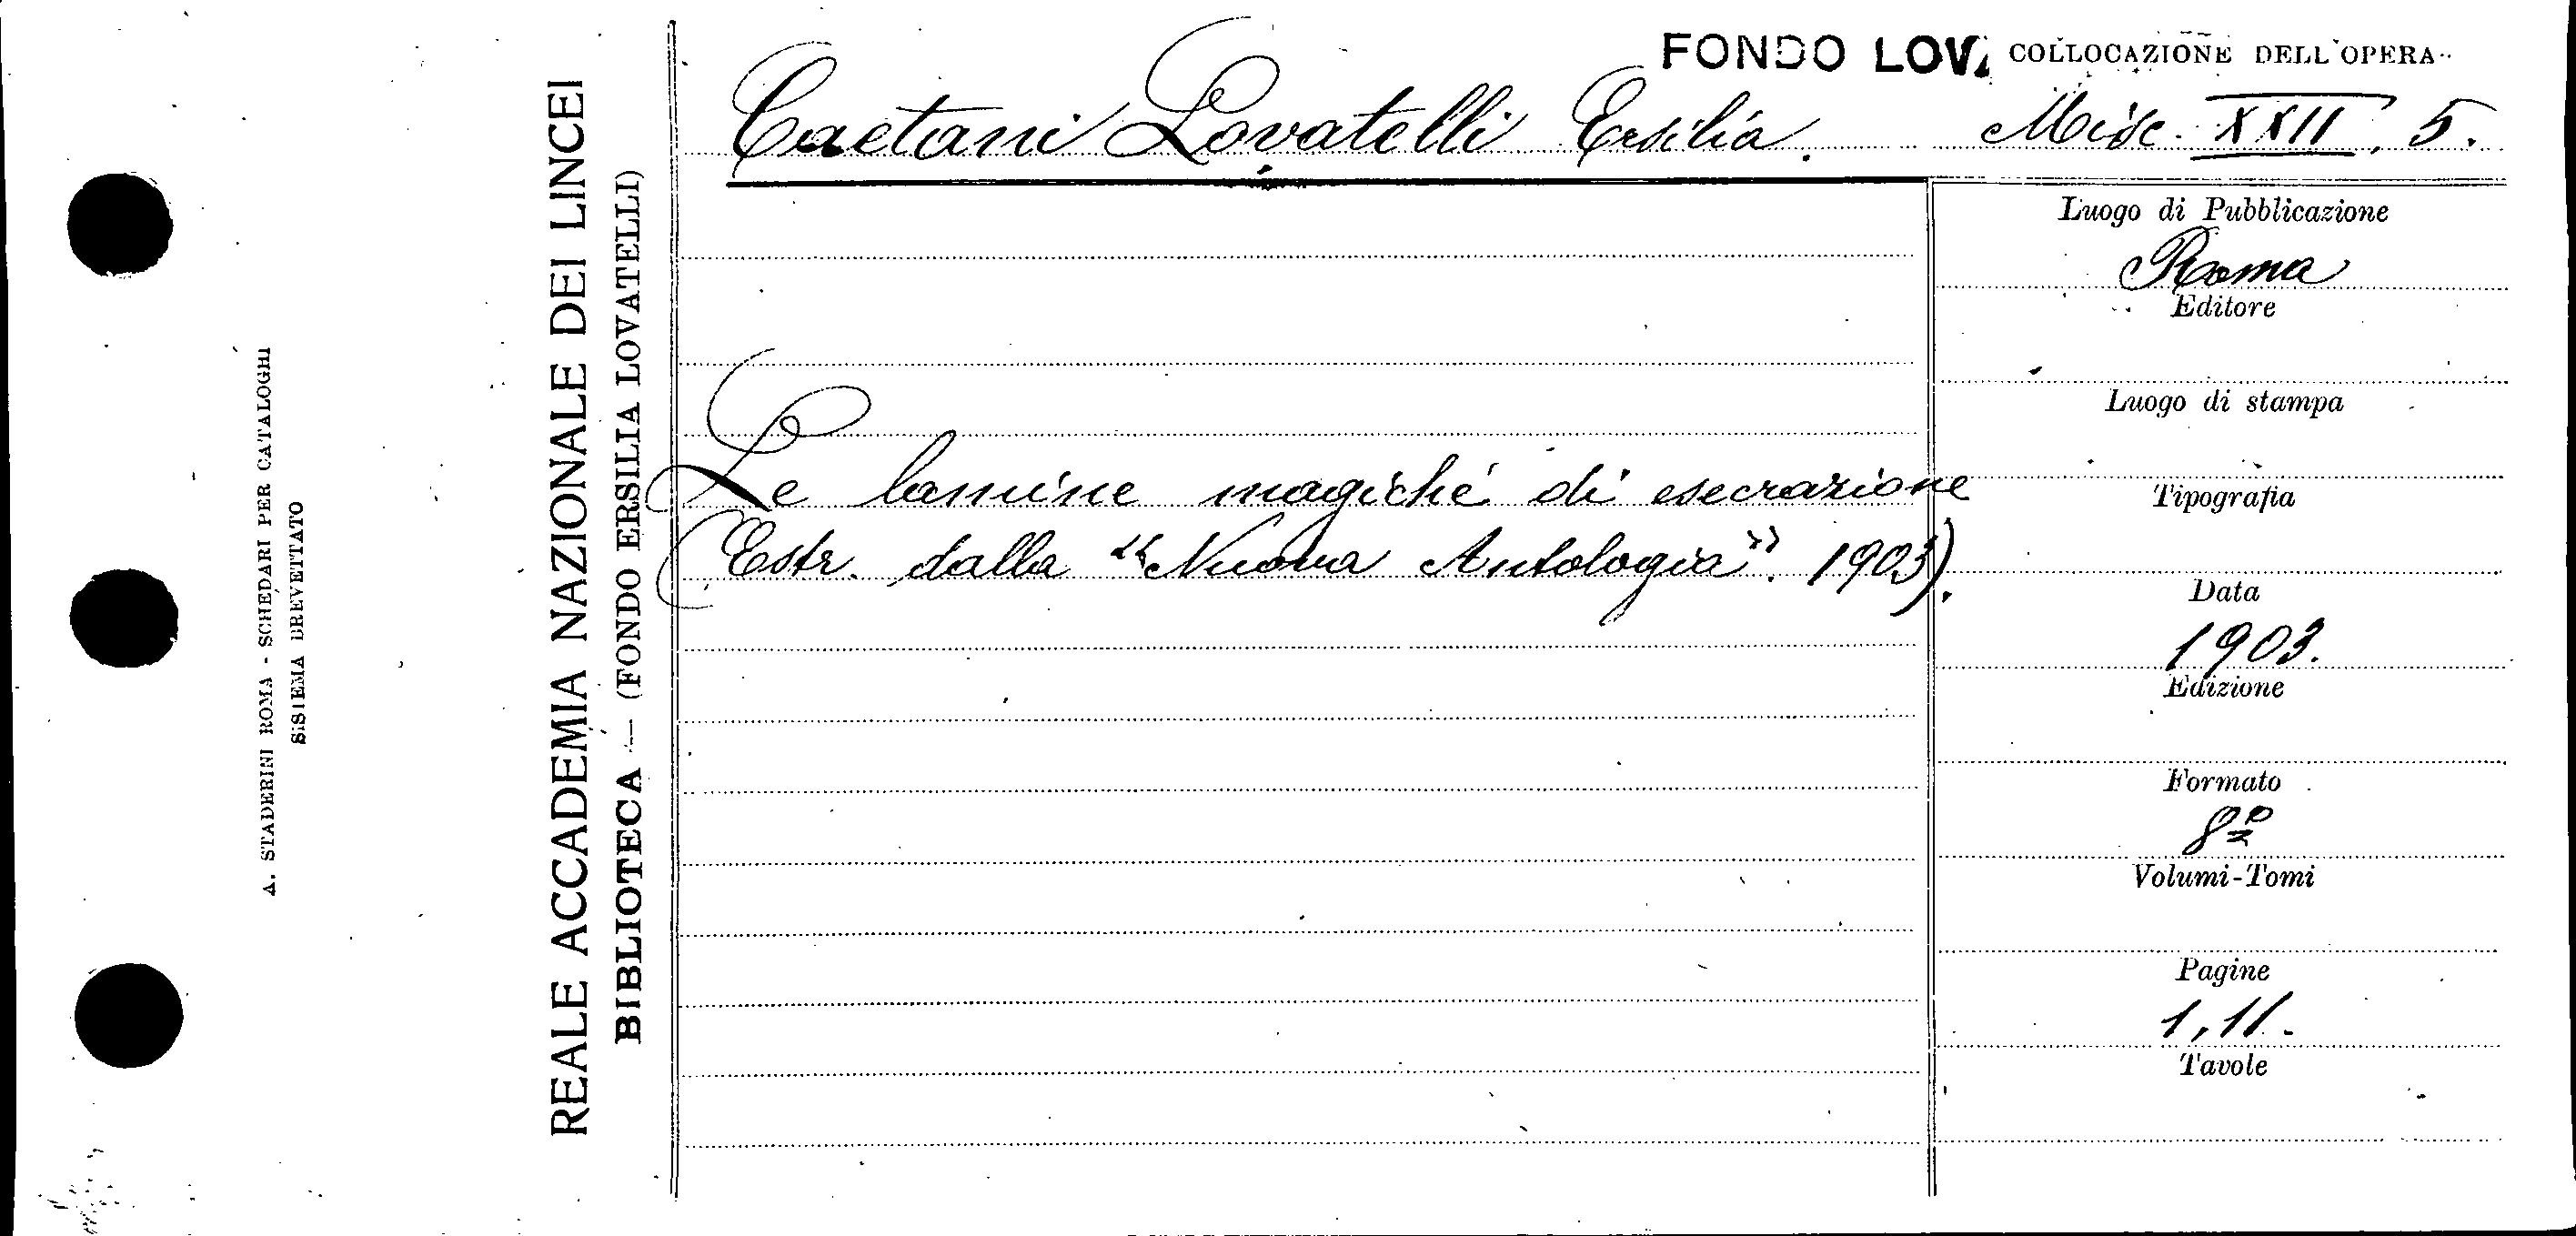 A. STADERINI ROMA - SCHEDARI PER CATALOGHI
SISTEMA BREVETTATO
REALE ACCADEMIA NAZIONALE DEI LINCEI
BIBLIOTECA — (FONDO ERSILIA LOVATELLI)
FONDO LOV. COLLOCAZIONE DELL'OPERA
Caetani Lovatelli Ersilia. Misc. XXII, 5.
Le lamine magiche di esecrazione
(Estr. dalla "Nuova Antologia". 1903).
Luogo di Pubblicazione
Roma
Editore
Luogo di stampa
Tipografia
Data
1903.
Edizione
Formato
8º
Volumi-Tomi
Pagine
1, 11.
Tavole